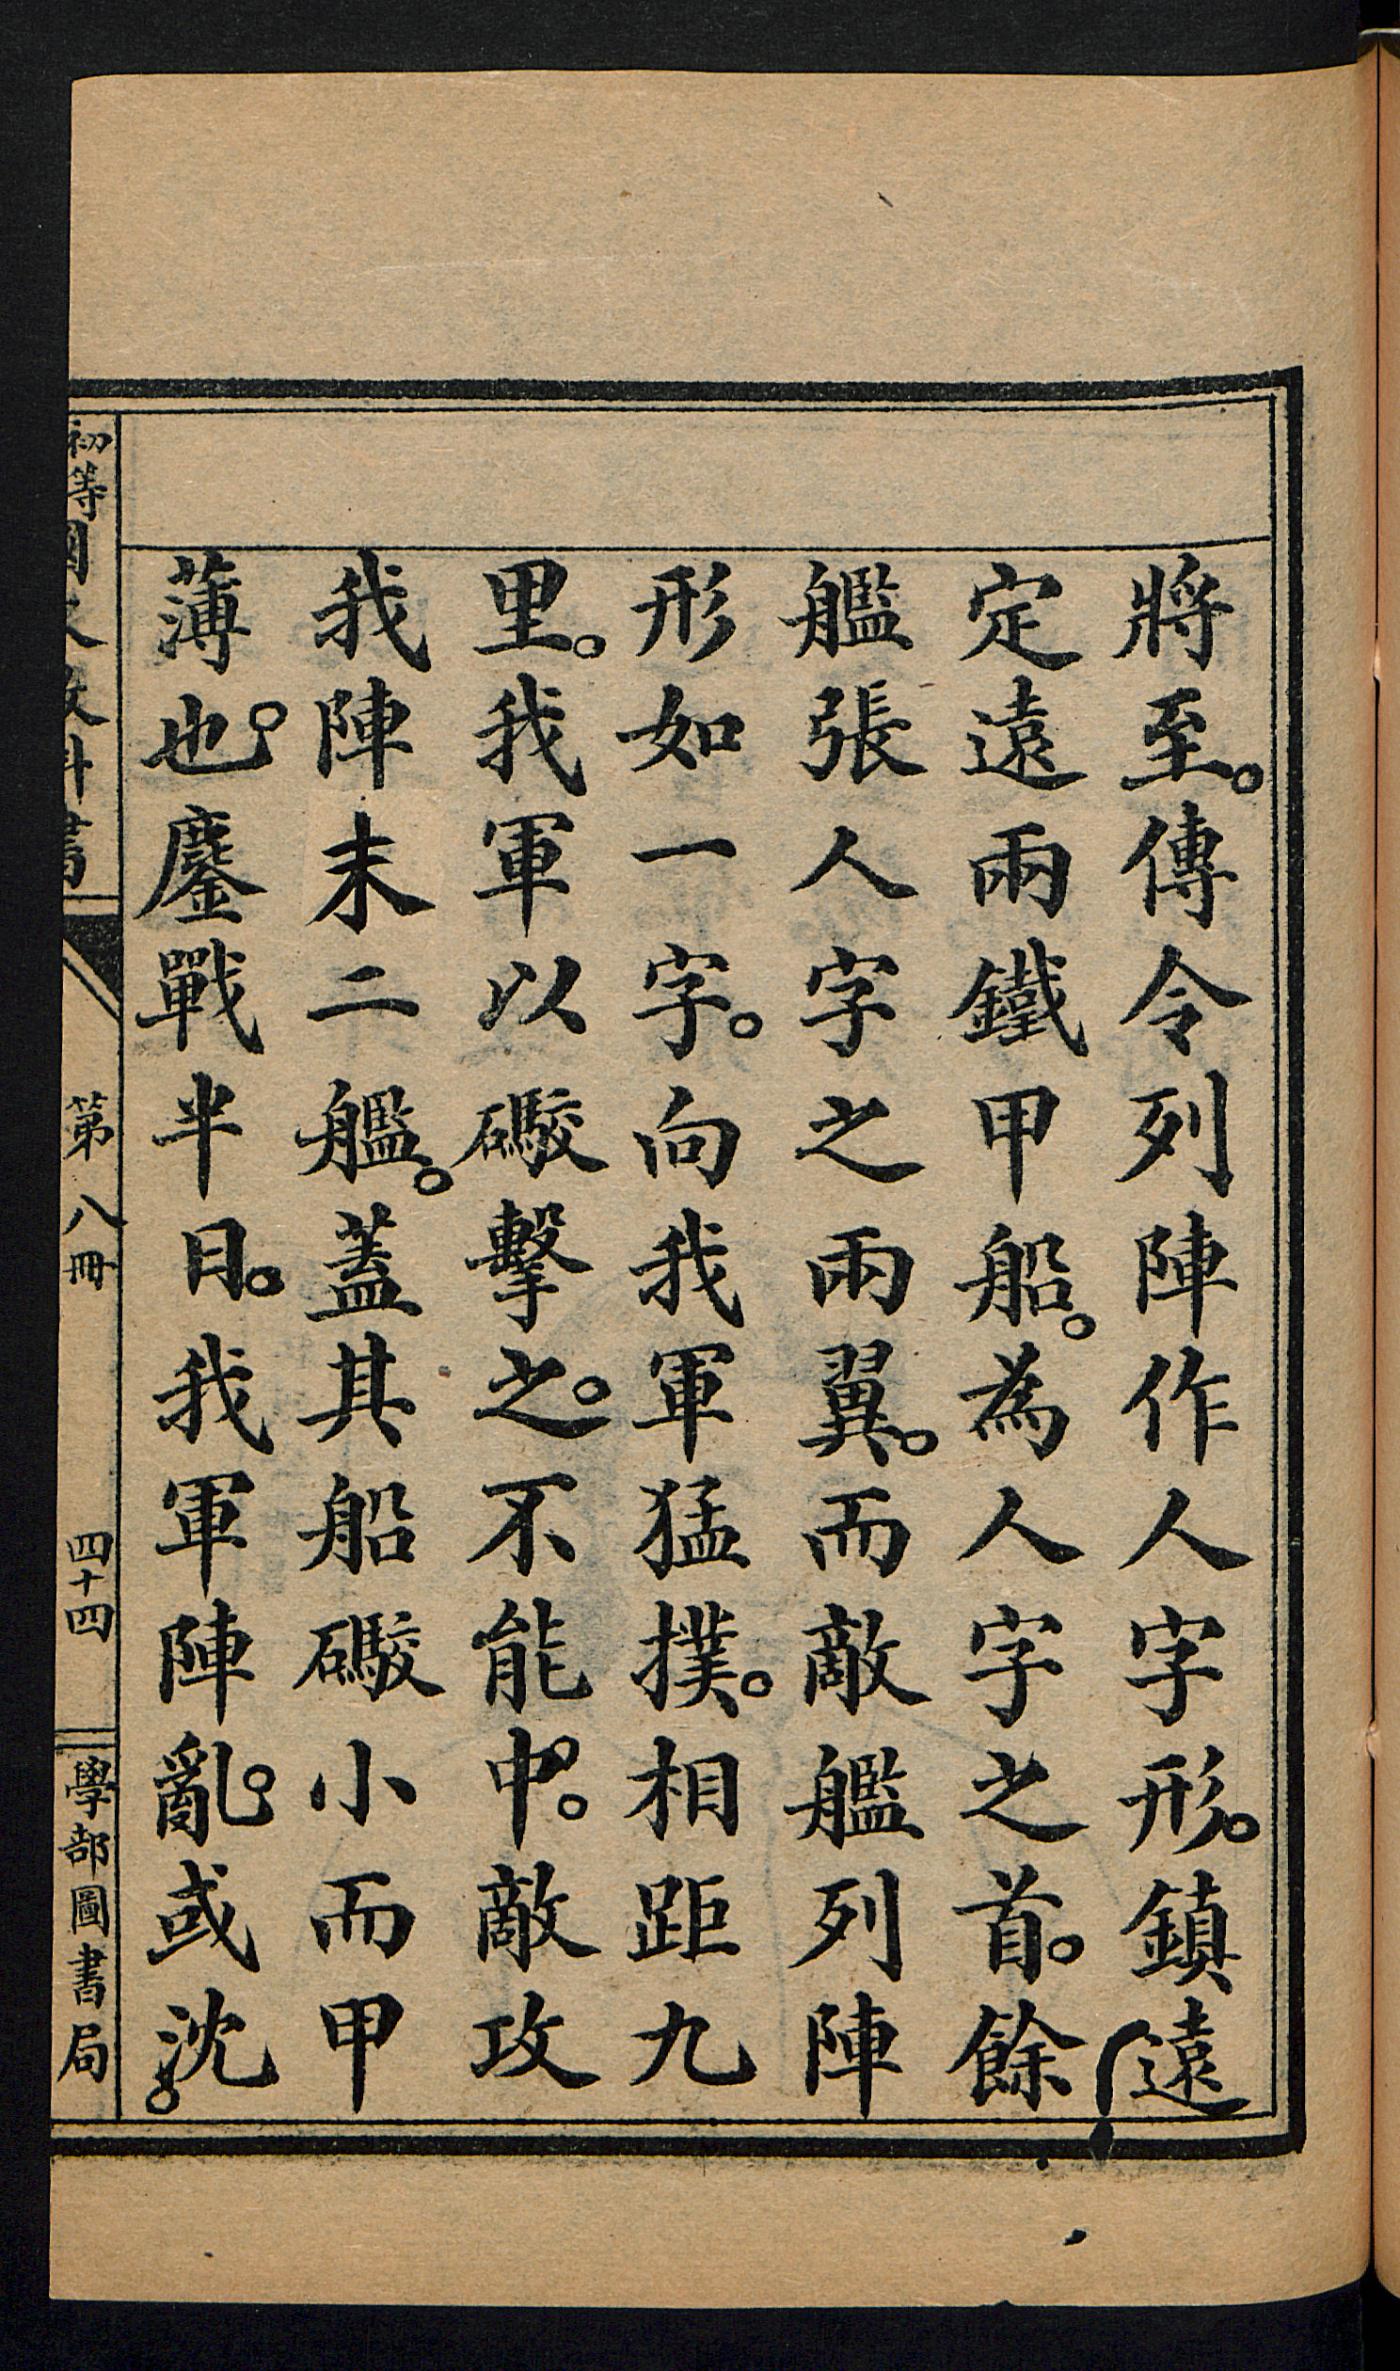 將至。傳令列陣作人字形。鎮遠
定遠兩鐵甲船。為人字之首。餘
艦張人字之兩翼。而敵艦列陣
形如一字。向我軍猛撲。相距九
里。我軍以礮擊之。不能中。敵攻
我陣末二艦。蓋其船礮小而甲
薄也。鏖戰半日。我軍陣亂。或沈。
初等國文教科書 第八冊 四十四 學部圖書局